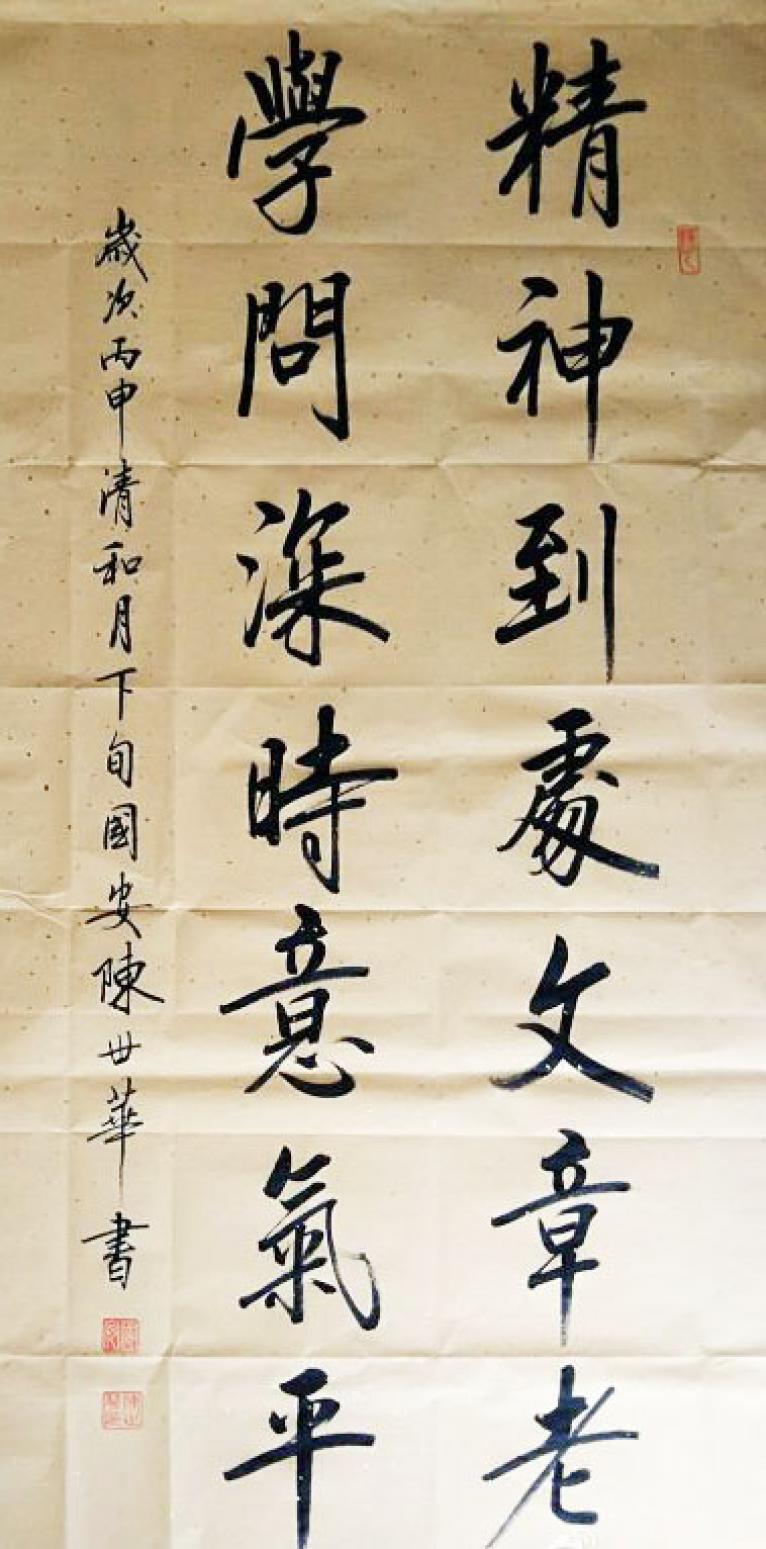 精神到處文章老
學問深時意氣平
歲次丙申清和月下旬國安陳世華書